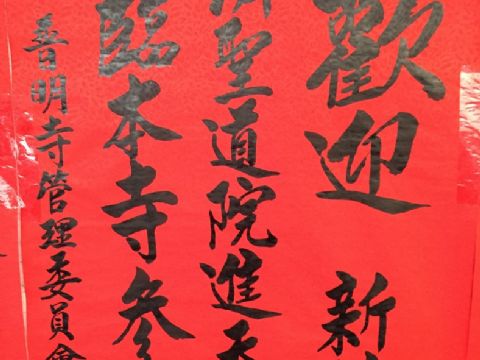 歡迎 新
聖道院進
臨本寺參
善明寺管理委員會